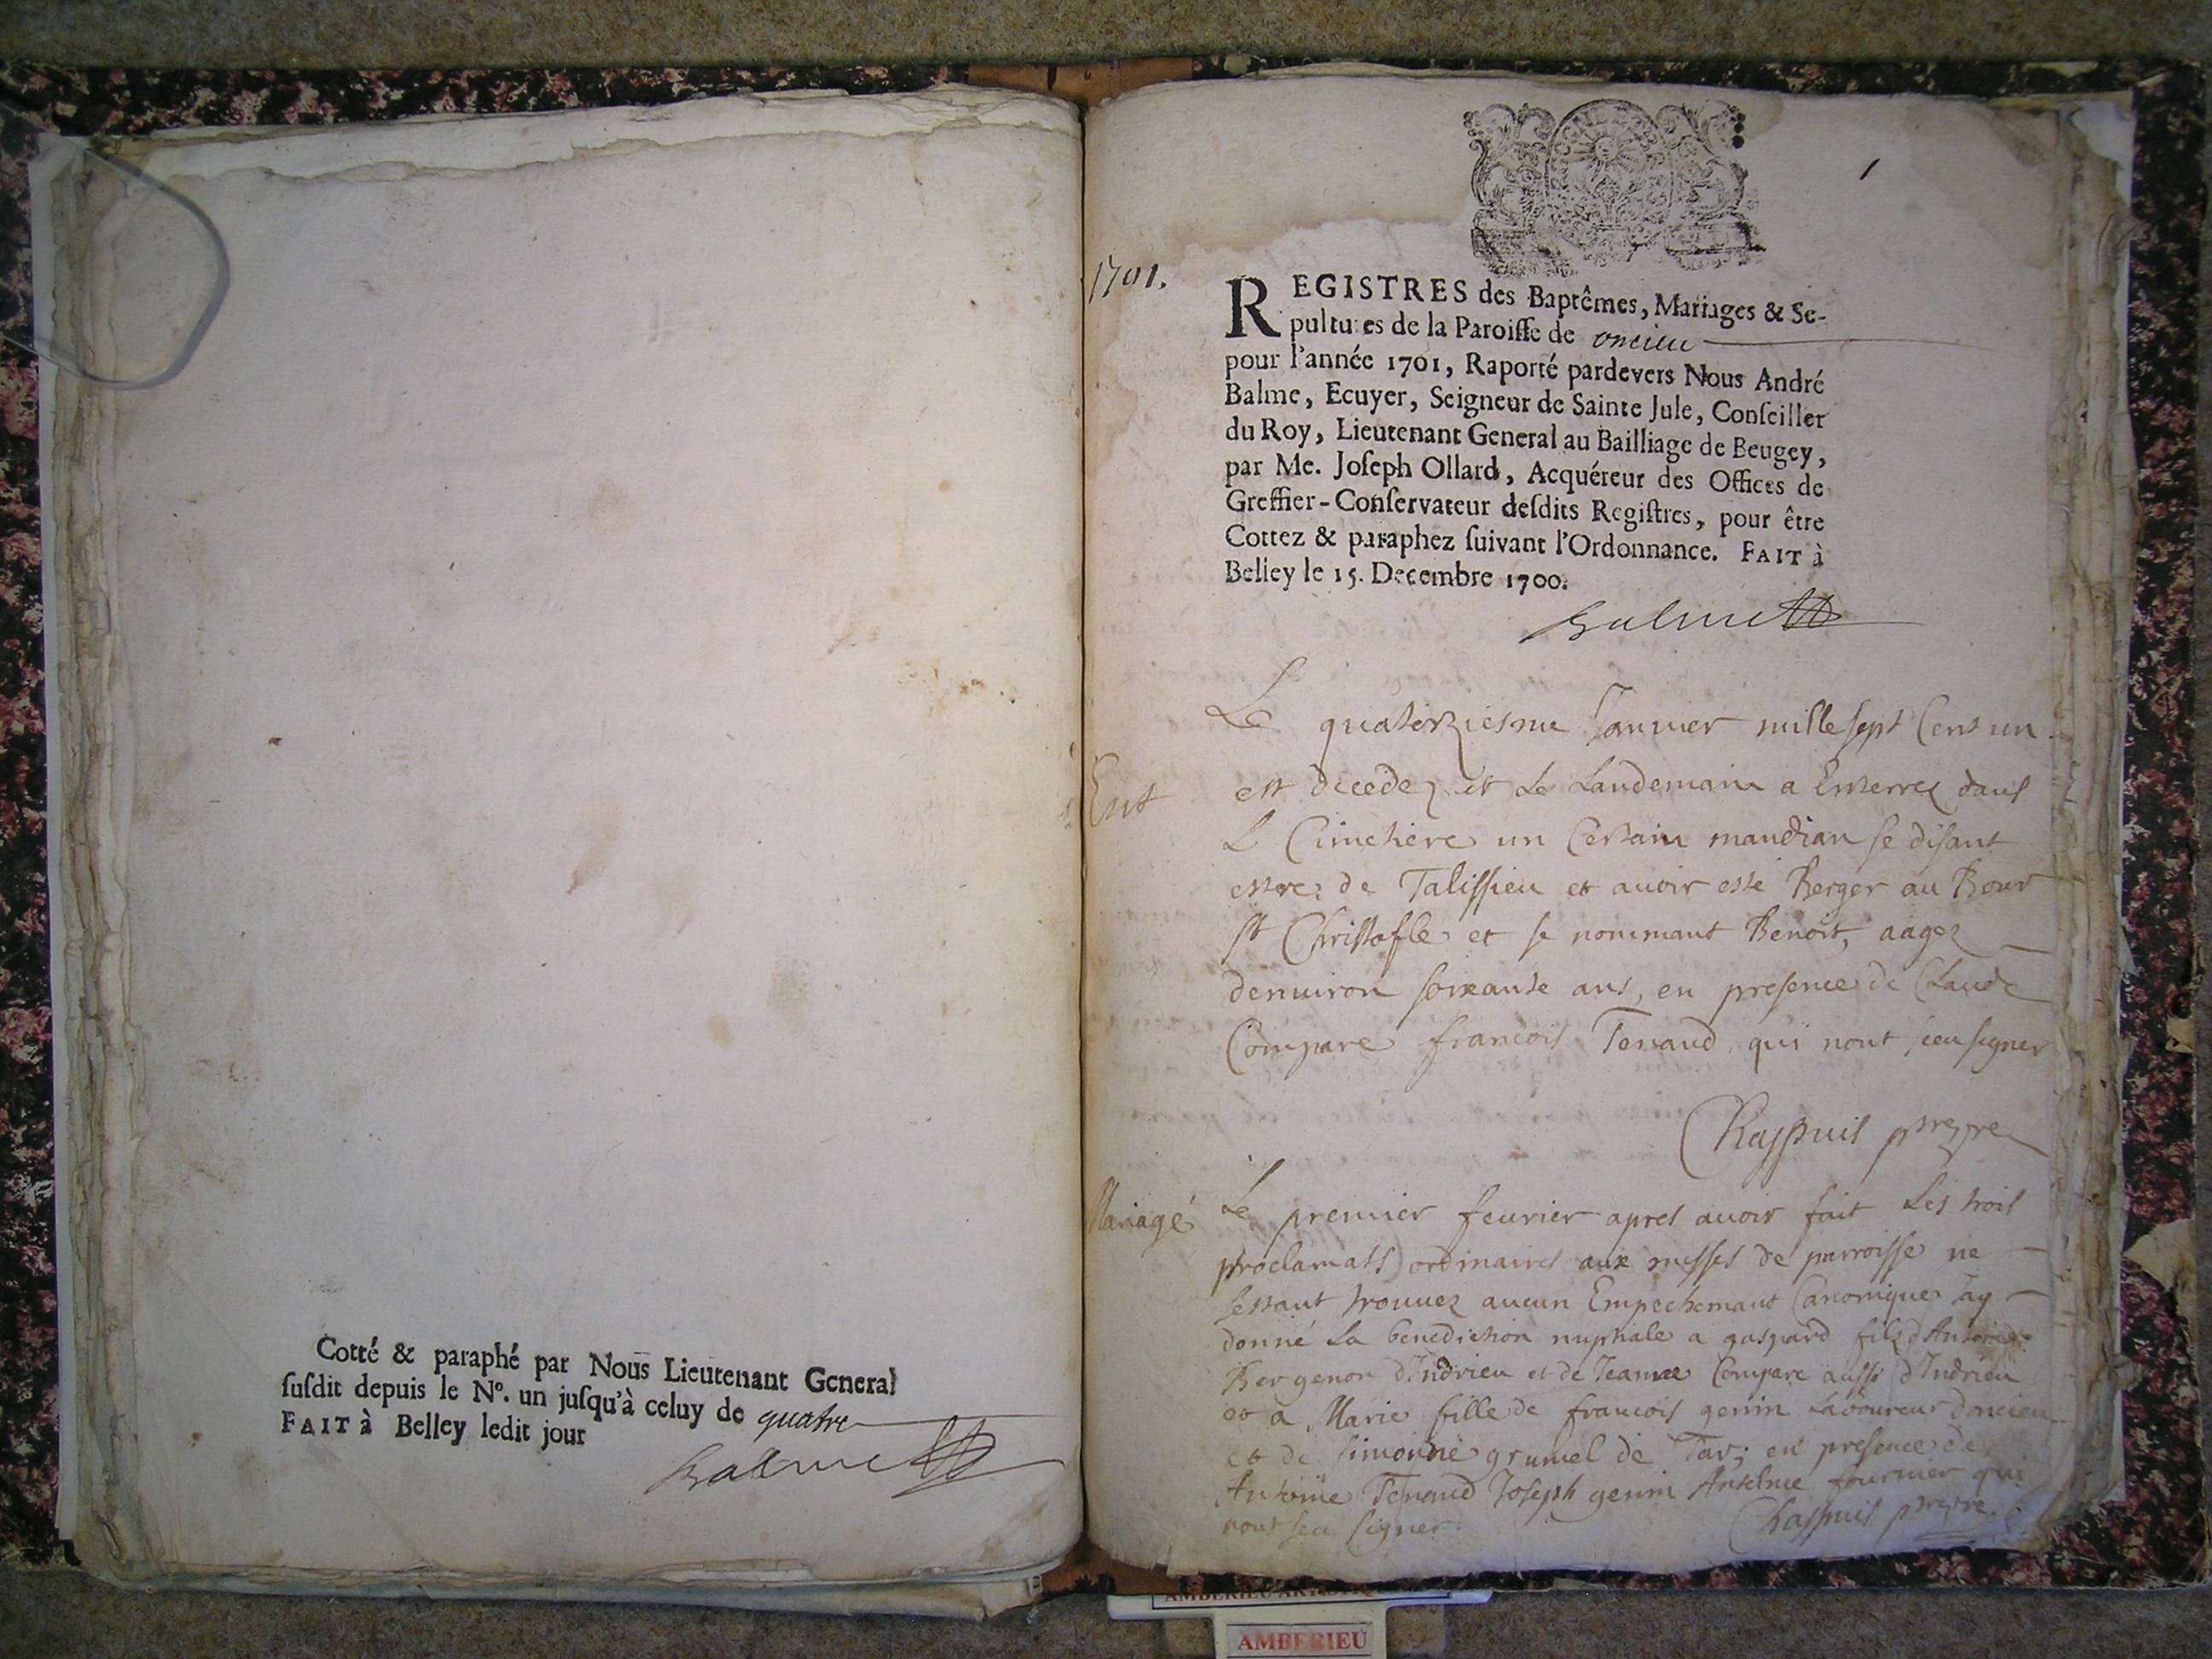 Cotté & paraphé par Nous Lieutenant General
ſuſdit depuis le Nº. un juſqu'à celuy de quatre
FAIT à Belley ledit jour
Balme
1
1701.
REGISTRES des Baptêmes, Mariages & Se-
pultures de la Paroiſſe de oncieu
pour l'année 1701, Raporté pardevers Nous André
Balme, Ecuyer, Seigneur de Sainte Jule, Conſeiller
du Roy, Lieutenant General au Bailliage de Beugey,
par Me. Joſeph Ollard, Acquéreur des Offices de
Greffier-Conſervateur deſdits Regiſtres, pour être
Cottez & paraphez ſuivant l'Ordonnance. FAIT à
Belley le 15. Decembre 1700.
Balme
Le quatorziesme Janvier mille sept Cent un
Ent
est decedez et Le Landemain a Enterrez dans
L Cimetiere un Certain mandian se disant
estre de Talissieu et avoir esté Berger au Bour
st Christofle et se nommant Benoit, aagez
denviron soixante ans, en presence de Claude
Compare francois Tenand qui nont sceu signer
Chappuis prestre
Mariagé
Le premier fevrier apres avoir fait Les trois
proclamats ordinaires aux messes de parroisse ne
sestant trouvez aucun Empechemant Canonique Jay
donné La benediction nuptiale a gaspard filz dAntoine
Bergenon dIndrieu et de Jeanne Compare aussi dIndrieu
et a Marie fille de francois genin Laboureur doncieu
et de simonne grumel de Tav; en presence de
Antoine Tenand Joseph genin Antelme fournier qui
nont sceu signer
Chappuis prestre
AMBERIEU